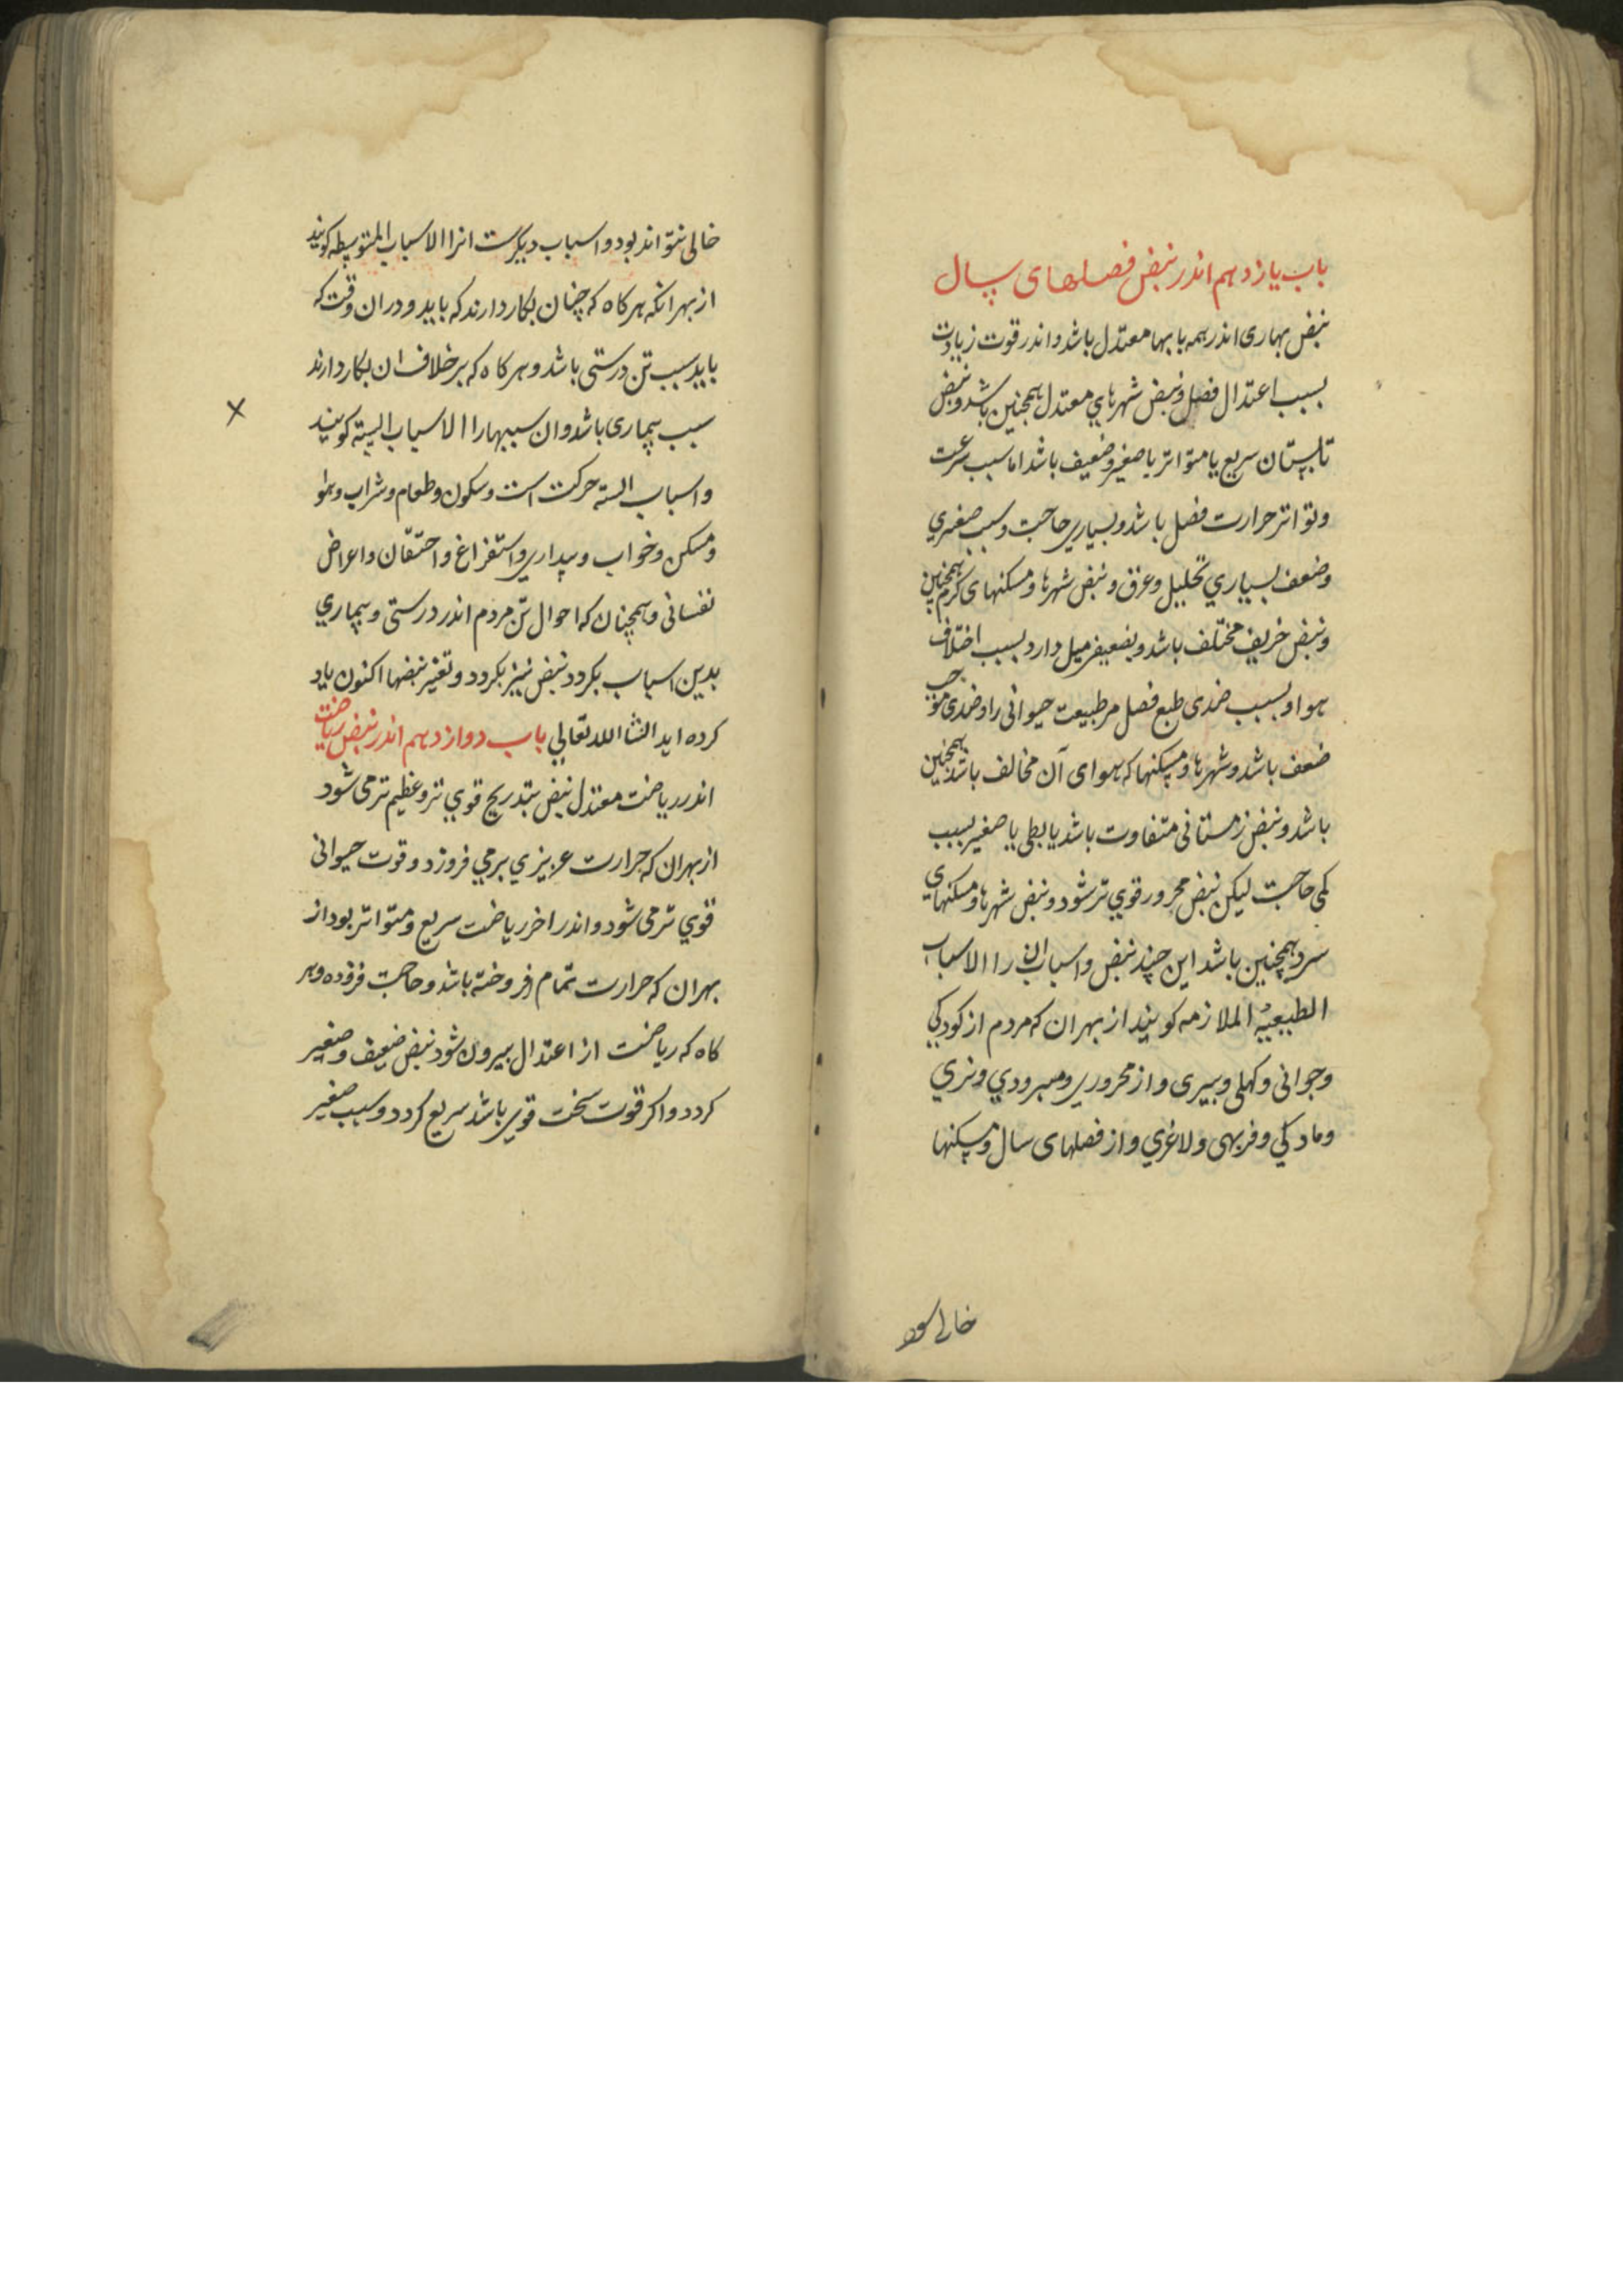 باب یازدهم اندر نبض فصلهای سال
نبض بهاری اندر همه بابها معتدل باشد و اندر قوت زیادت
بسبب اعتدال فصل و نبض شهرهاي معتدل همچنین باشد و نبض
تابستان سریع یا متواتر یا صغیر و ضعیف باشد اما سبب سرعت
و تواتر حرارت فصل باشد و بسیاري حاجت و سبب صغیري
و ضعف بسیاري تحلیل و عرق و نبض شهرها و مسکنهای کرم همچنین
و نبض خریف مختلف باشد و بضعیفی میل دارد بسبب اختلاف
هوا و بسبب ضدی طبع فصل مر طبیعت حیوانی را و ضدی موجب
ضعف باشد و شهرها و مسکنها که هوای آن مخالف باشد همچنین
باشد و نبض زمستانی متفاوت باشد یا بطی یا صغیر بسبب
کمی حاجت لیکن نبض محرور قوي تر شود و نبض شهرها و مسکنهای
سرد همچنین باشد این چند نبض و اسباب ان را الاسباب
الطبیعیه الملازمه کویند از بهر ان که مردم از کودکي
و جوانی و کهلی و پیری و از محروري و مبرودي و نري
و مادکي و فربهی و لاغري و از فصلهای سال و مسکنها
خالی
خالی نتواند بود و اسباب دیکرست انرا الاسباب المتوسطه کویند
از بهر انکه هرکاه که چنان بکار دارند که باید و در ان وقت که
باید سبب تن درستی باشد و هرکاه که برخلاف ان بکار دارند
سبب بیماری باشد و ان سببها را الاسباب الستة کویند
و اسباب السته حرکت است و سکون و طعام و شراب و هوا
و مسکن و خواب و بیداري و استفراغ و احتقان و اعراض
نفسانی و همچنان که احوال تن مردم اندر درستی و بیماري
بدین اسباب بکردد نبض نیز بکردد و تغیر نبضها اکنون یاد
کرده اید انشا الله تعالي باب دوازدهم اندر نبض ریاضت
اندر ریاضت معتدل نبض بتدریج قوي تر و عظیم تر می شود
از بهر ان که حرارت عزیزي برمي فروزد و قوت حیوانی
قوي تر می شود و اندر اخر ریاضت سریع و متواتر بود از
بهر ان که حرارت تمام افروخته باشد و حاجت فزوده و هر
کاه که ریاضت از اعتدال بیرون شود نبض ضعیف و صغیر
کردد و اکر قوت سخت قوي باشد سریع کردد و سبب صغیر